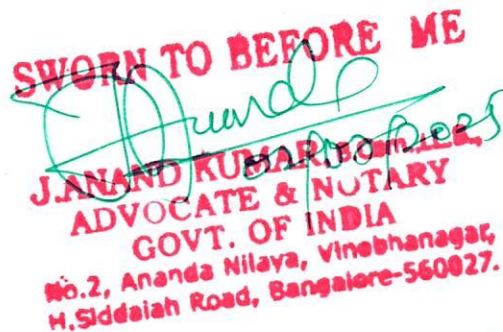 SWORN TO BEFORE ME
J.ANAND KUMAR
ADVOCATE & NOTARY
GOVT. OF INDIA
No.2, Ananda Nilaya, Vinobhanagar,
H.Siddaiah Road, Bangalore-560027.